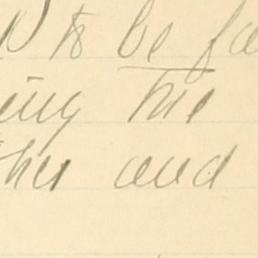 to be fa
ing the
her and